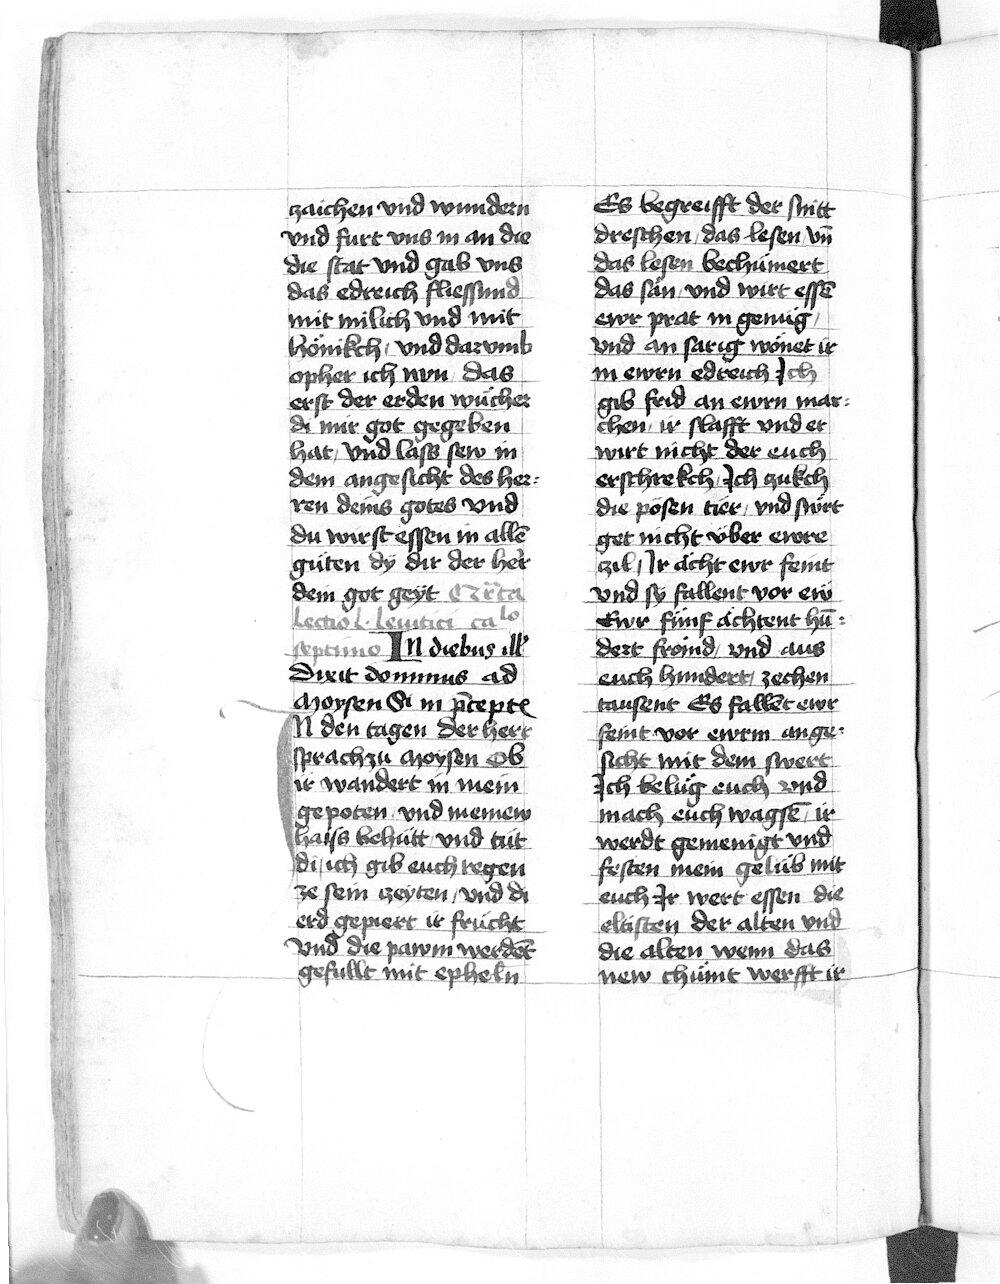 zaichen vnd wundern
vnd furt vns in an die
die stat vnd gab vns
das edreich fliessund
mit milich vnd mit
hönikch / vnd darvmb
opher ich nvn das
erst der erden wücher
di mir got gegeben
hat / vnd lass sew in
dem angesicht des her:
ren deins gotes vnd
du wirst essen in allē
güten dÿ dir der her
dein got geÿt
Lectio L. Leuitici ca lo
septimo In diebus ill
Dixit dominus ad
Moysen Si in p̄cept
N den tagen der herr
sprach zu Moÿsen Ob
ir wandert in mein
gepoten / vnd meinew
haiss behütt / vnd tüt
di / ich gib euch regen
ze sein zeÿten / vnd di
erd gepiert ir frücht
vnd die pawm werdēt
gefullt mit epheln
Es begreifft der snitt
dreschen / das lesen vn̄
das lesen bechümert
das sän / vnd wirt essē
ewr prat in genüg /
vnd an sarig wönet ir
in ewrn edreich Ich
gib frid an ewrn mar:
chen / ir slafft vnd er
wirt nicht der euch
erschrekch / Ich zukch
die pösen tier / vnd swirt
get nicht über ewre
zil / Ir ächt ewr feint
vnd sÿ fallent vor ew
Ewr fünf ächtent hū:
dert froind / vnd aus
euch hundert / zechen
tausent Es fallēt ewr
feint vor ewrm ange:
sicht mit dem swert
Ich belüg euch vnd
mach euch wagsē / ir
werdt gemenigt vnd
festen mein gelüb mit
euch Ir wert essen die
eltisten der alten vnd
die alten wenn das
new chümt werfft ir